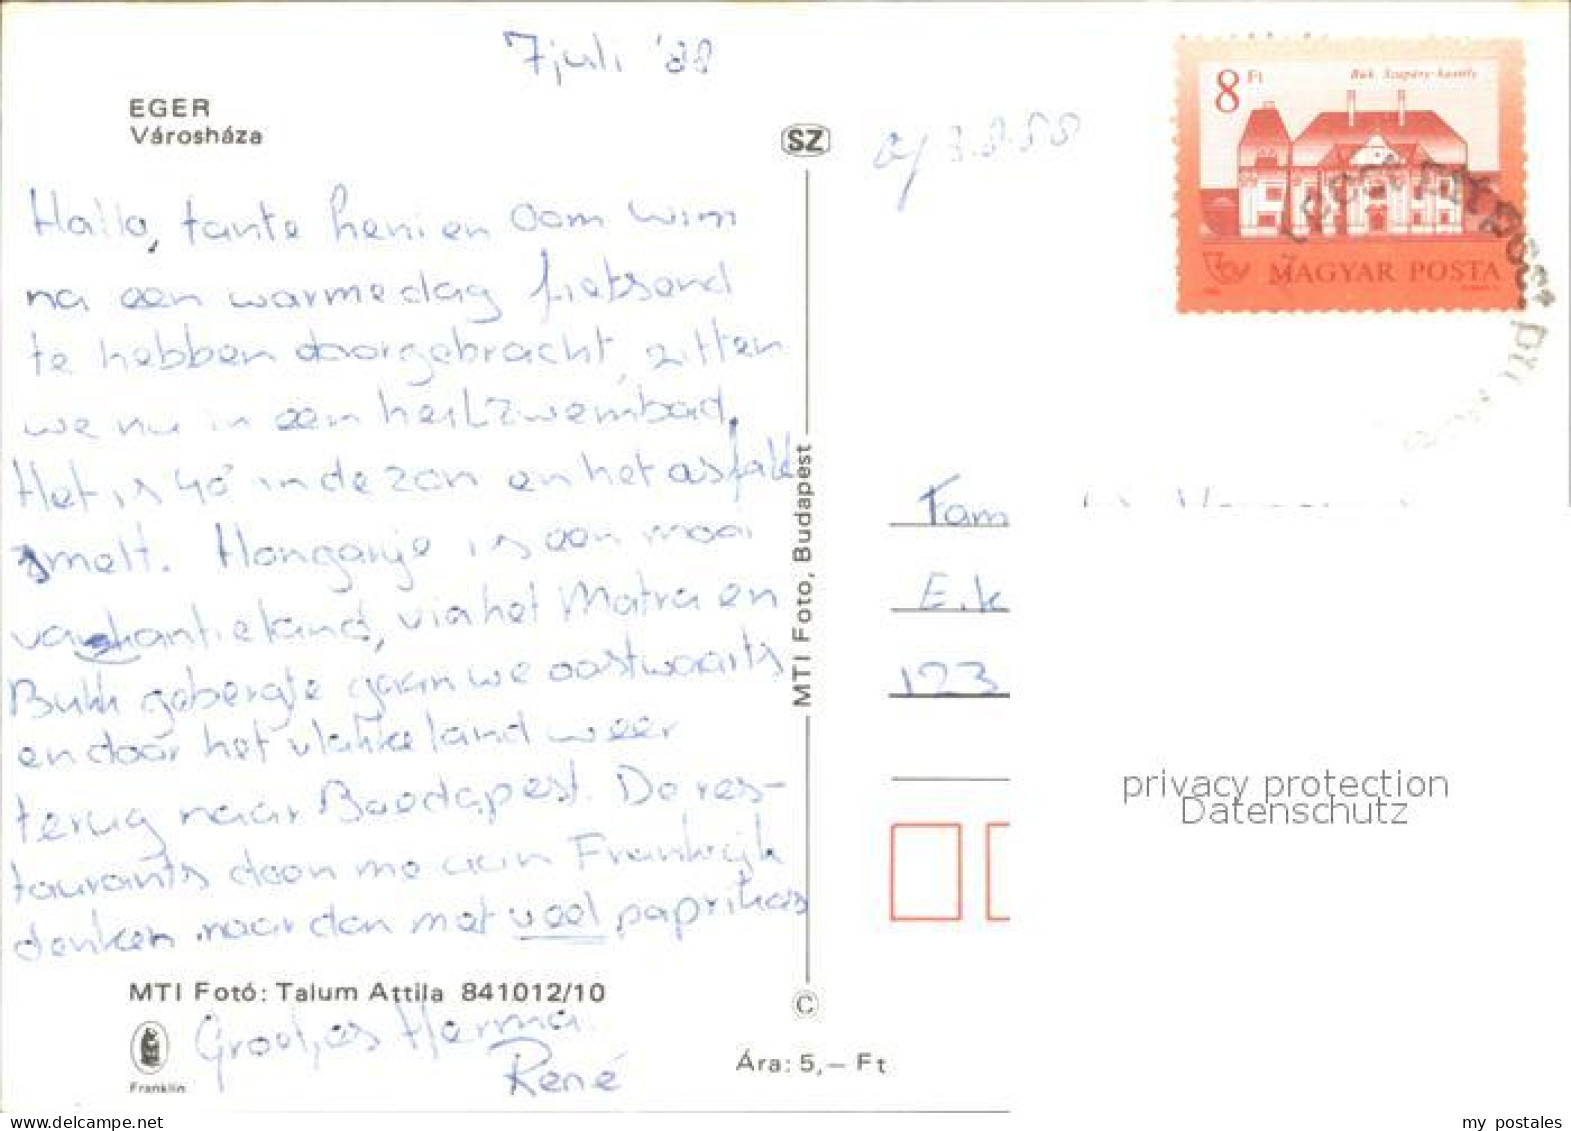 7 juli '88
EGER
Városháza
SZ
8 Ft
Bük. Szapáry-kastély
MAGYAR POSTA
Hallo, tante heni en Oom Wim
na een warme dag fietsend
te hebben doorgebracht, zitten
we nu in een heilzwembad.
Het is 40° in de zon en het asfalt
smelt. Hongarije is een mooi
vakantieland, via het Matra en
Bukk gebergte gaan we oostwaarts
en door het vlakke land weer
terug naar Boedapest. De res-
taurants doen me aan Frankrijk
denken, maar dan met veel paprikas
Groetjes Herma
René
MTI Foto, Budapest
Fam
E.k
123
privacy protection
Datenschutz
MTI Fotó: Talum Attila 841012/10
Franklin
©
Ára: 5,– Ft
my_postales